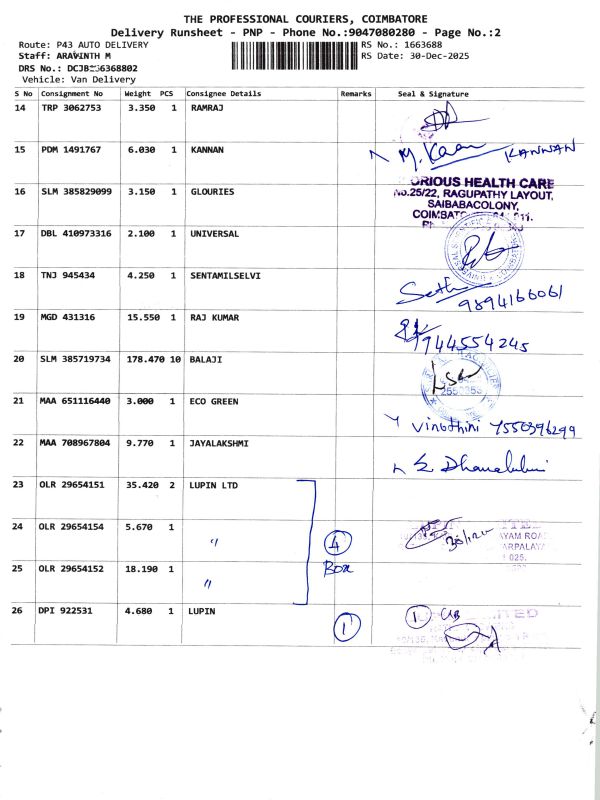 THE PROFESSIONAL COURIERS, COIMBATORE
Delivery Runsheet - PNP - Phone No.:9047080280 - Page No.:2
Route: P43 AUTO DELIVERY RS No.: 1663688
Staff: ARAVINTH M RS Date: 30-Dec-2025
DRS No.: DCJB236368802
Vehicle: Van Delivery
S No Consignment No Weight PCS Consignee Details Remarks Seal & Signature
14 TRP 3062753 3.350 1 RAMRAJ
15 PDM 1491767 6.030 1 KANNAN M. Kaan KANNAN
16 SLM 385829099 3.150 1 GLOURIES
ORIOUS HEALTH CARE
No.25/22, RAGUPATHY LAYOUT,
SAIBABACOLONY,
17 DBL 410973316 2.100 1 UNIVERSAL
18 TNJ 945434 4.250 1 SENTAMILSELVI
9894166061
19 MGD 431316 15.550 1 RAJ KUMAR
9444554245
20 SLM 385719734 178.470 10 BALAJI
21 MAA 651116440 3.000 1 ECO GREEN
Vinothini 7550396299
22 MAA 708967804 9.770 1 JAYALAKSHMI
23 OLR 29654151 35.420 2 LUPIN LTD
24 OLR 29654154 5.670 1 " 4
Box
25 OLR 29654152 18.190 1 "
26 DPI 922531 4.680 1 LUPIN 1 1 CB